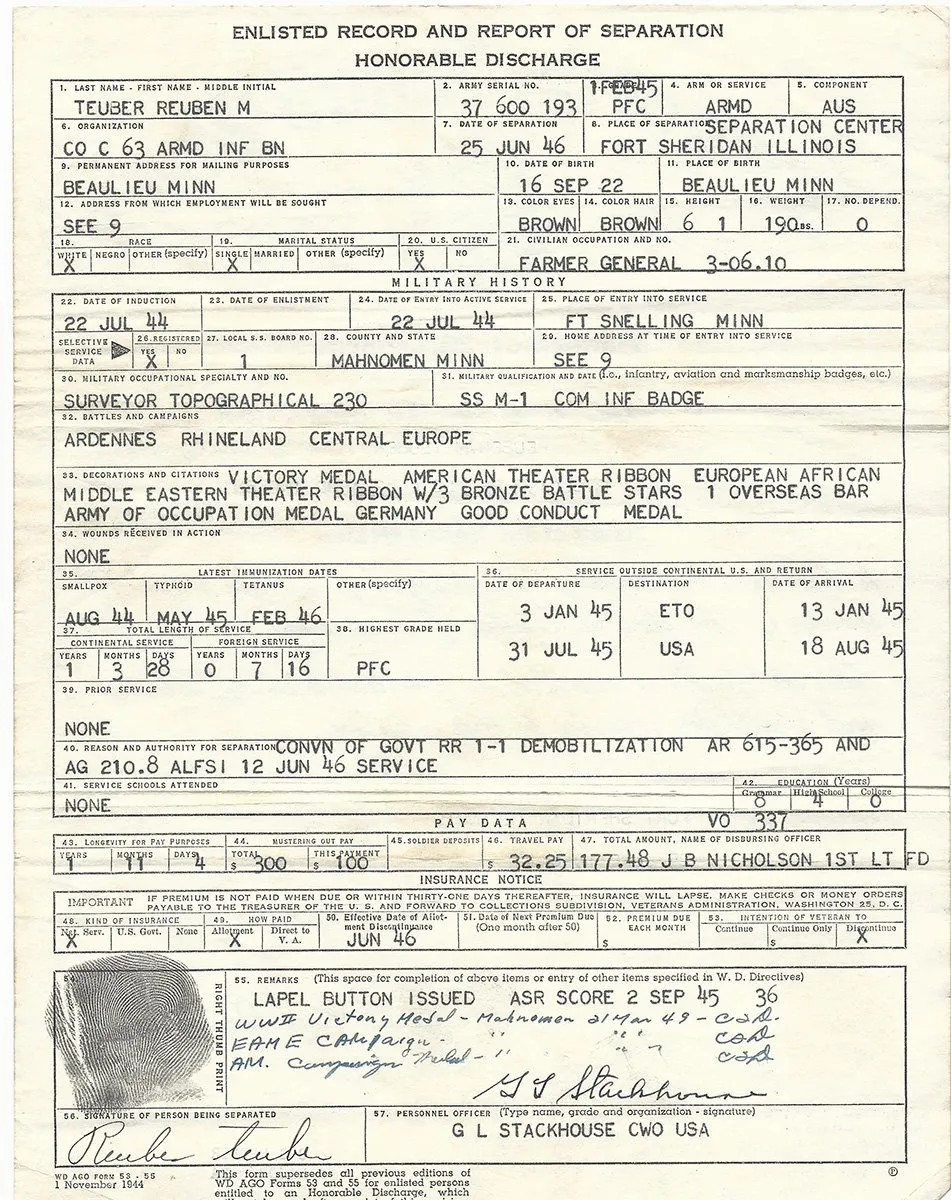 ENLISTED RECORD AND REPORT OF SEPARATION
HONORABLE DISCHARGE
1. LAST NAME - FIRST NAME - MIDDLE INITIAL
TEUBER REUBEN M
2. ARMY SERIAL NO.
37 600 193
1FEB45
PFC
4. ARM OR SERVICE
ARMD
5. COMPONENT
AUS
6. ORGANIZATION
CO C 63 ARMD INF BN
7. DATE OF SEPARATION
25 JUN 46
8. PLACE OF SEPARATION SEPARATION CENTER
FORT SHERIDAN ILLINOIS
9. PERMANENT ADDRESS FOR MAILING PURPOSES
BEAULIEU MINN
10. DATE OF BIRTH
16 SEP 22
11. PLACE OF BIRTH
BEAULIEU MINN
12. ADDRESS FROM WHICH EMPLOYMENT WILL BE SOUGHT
SEE 9
13. COLOR EYES
BROWN
14. COLOR HAIR
BROWN
15. HEIGHT
6 1
16. WEIGHT
190 LBS.
17. NO. DEPEND.
0
18. RACE
WHITE NEGRO OTHER (specify)
X
19. MARITAL STATUS
SINGLE MARRIED OTHER (specify)
X
20. U.S. CITIZEN
YES NO
X
21. CIVILIAN OCCUPATION AND NO.
FARMER GENERAL 3-06.10
MILITARY HISTORY
22. DATE OF INDUCTION
22 JUL 44
23. DATE OF ENLISTMENT
24. DATE OF ENTRY INTO ACTIVE SERVICE
22 JUL 44
25. PLACE OF ENTRY INTO SERVICE
FT SNELLING MINN
SELECTIVE
SERVICE
DATA
26. REGISTERED
YES NO
X
27. LOCAL S.S. BOARD NO.
1
28. COUNTY AND STATE
MAHNOMEN MINN
29. HOME ADDRESS AT TIME OF ENTRY INTO SERVICE
SEE 9
30. MILITARY OCCUPATIONAL SPECIALTY AND NO.
SURVEYOR TOPOGRAPHICAL 230
31. MILITARY QUALIFICATION AND DATE (i.e., infantry, aviation and marksmanship badges, etc.)
SS M-1 COM INF BADGE
32. BATTLES AND CAMPAIGNS
ARDENNES RHINELAND CENTRAL EUROPE
33. DECORATIONS AND CITATIONS VICTORY MEDAL AMERICAN THEATER RIBBON EUROPEAN AFRICAN
MIDDLE EASTERN THEATER RIBBON W/3 BRONZE BATTLE STARS 1 OVERSEAS BAR
ARMY OF OCCUPATION MEDAL GERMANY GOOD CONDUCT MEDAL
34. WOUNDS RECEIVED IN ACTION
NONE
35. LATEST IMMUNIZATION DATES
SMALLPOX TYPHOID TETANUS OTHER (specify)
AUG 44 MAY 45 FEB 46
36. SERVICE OUTSIDE CONTINENTAL U.S. AND RETURN
DATE OF DEPARTURE DESTINATION DATE OF ARRIVAL
3 JAN 45 ETO 13 JAN 45
31 JUL 45 USA 18 AUG 45
37. TOTAL LENGTH OF SERVICE
CONTINENTAL SERVICE FOREIGN SERVICE
YEARS MONTHS DAYS YEARS MONTHS DAYS
1 3 28 0 7 16
38. HIGHEST GRADE HELD
PFC
39. PRIOR SERVICE
NONE
40. REASON AND AUTHORITY FOR SEPARATION CONVN OF GOVT RR 1-1 DEMOBILIZATION AR 615-365 AND
AG 210.8 ALFSI 12 JUN 46 SERVICE
41. SERVICE SCHOOLS ATTENDED
NONE
42. EDUCATION (Years)
Grammar High School College
8 4 0
PAY DATA
VO 337
43. LONGEVITY FOR PAY PURPOSES
YEARS MONTHS DAYS
1 11 4
44. MUSTERING OUT PAY
TOTAL THIS PAYMENT
$ 300 $ 100
45. SOLDIER DEPOSITS
46. TRAVEL PAY
$ 32.25
47. TOTAL AMOUNT, NAME OF DISBURSING OFFICER
177.48 J B NICHOLSON 1ST LT FD
INSURANCE NOTICE
IMPORTANT IF PREMIUM IS NOT PAID WHEN DUE OR WITHIN THIRTY-ONE DAYS THEREAFTER, INSURANCE WILL LAPSE. MAKE CHECKS OR MONEY ORDERS
PAYABLE TO THE TREASURER OF THE U. S. AND FORWARD TO COLLECTIONS SUBDIVISION, VETERANS ADMINISTRATION, WASHINGTON 25, D. C.
48. KIND OF INSURANCE
Nat. Serv. U.S. Govt. None
X
49. HOW PAID
Allotment Direct to
V. A.
X
50. Effective Date of Allot-
ment Discontinuance
JUN 46
51. Date of Next Premium Due
(One month after 50)
52. PREMIUM DUE
EACH MONTH
$
53. INTENTION OF VETERAN TO
Continue Continue Only Discontinue
$ X
54.
RIGHT THUMB PRINT
55. REMARKS (This space for completion of above items or entry of other items specified in W. D. Directives)
LAPEL BUTTON ISSUED ASR SCORE 2 SEP 45 36
WWII Victory Medal - Mahnomen 21 Mar 49 -
EAME CAMpaign - " " " "
AM. Campaign Medal - " " "
G L Stackhouse
56. SIGNATURE OF PERSON BEING SEPARATED
Reuben Teuber
57. PERSONNEL OFFICER (Type name, grade and organization - signature)
G L STACKHOUSE CWO USA
WD AGO FORM 53 - 55
1 November 1944
This form supersedes all previous editions of
WD AGO Forms 53 and 55 for enlisted persons
entitled to an Honorable Discharge, which